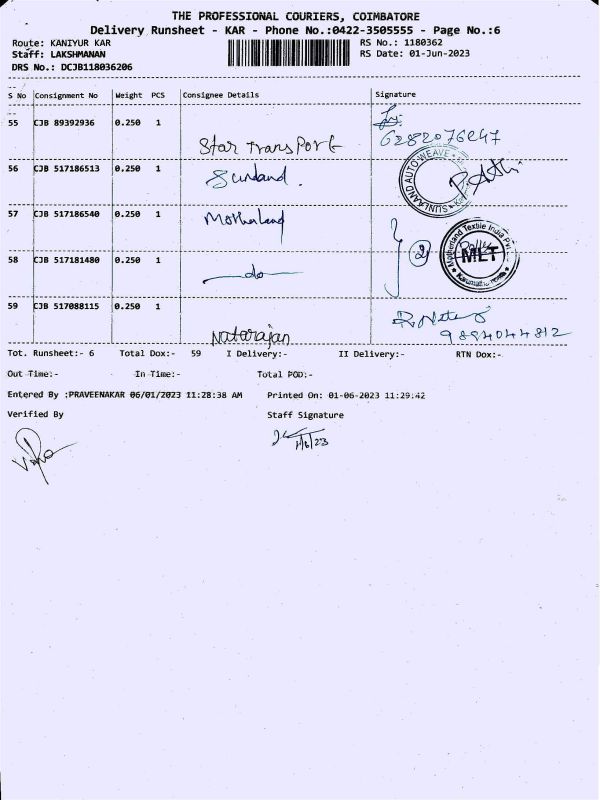 THE PROFESSIONAL COURIERS, COIMBATORE
Delivery Runsheet - KAR - Phone No.:0422-3505555 - Page No.:6
Route: KANIYUR KAR RS No.: 1180362
Staff: LAKSHMANAN RS Date: 01-Jun-2023
DRS No.: DCJB118036206
S No Consignment No Weight PCS Consignee Details Signature
55 CJB 89392936 0.250 1 Star Transport
56 CJB 517186513 0.250 1
57 CJB 517186540 0.250 1 Motherland 2 Motherland Textile India MLT
58 CJB 517181480 0.250 1 -do-
59 CJB 517088115 0.250 1 Natarajan
Tot. Runsheet:- 6 Total Dox:- 59 I Delivery:- II Delivery:- RTN Dox:-
Out Time:- In Time:- Total POD:-
Entered By :PRAVEENAKAR 06/01/2023 11:28:38 AM Printed On: 01-06-2023 11:29:42
Verified By Staff Signature